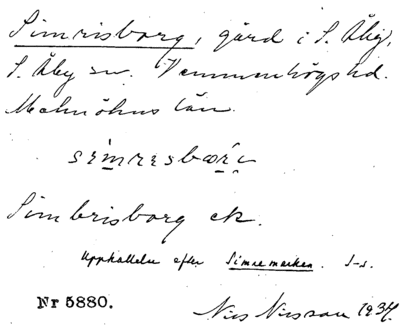 Simrisborg, gård i S. Åby,
S. Åby sn. Vemmenhögs hd.
Malmöhus län.
Simbrisborg ek.
Uppkallelse efter Simremarken. S-s.
Nr 5880.
Nils Nilsson 1934.